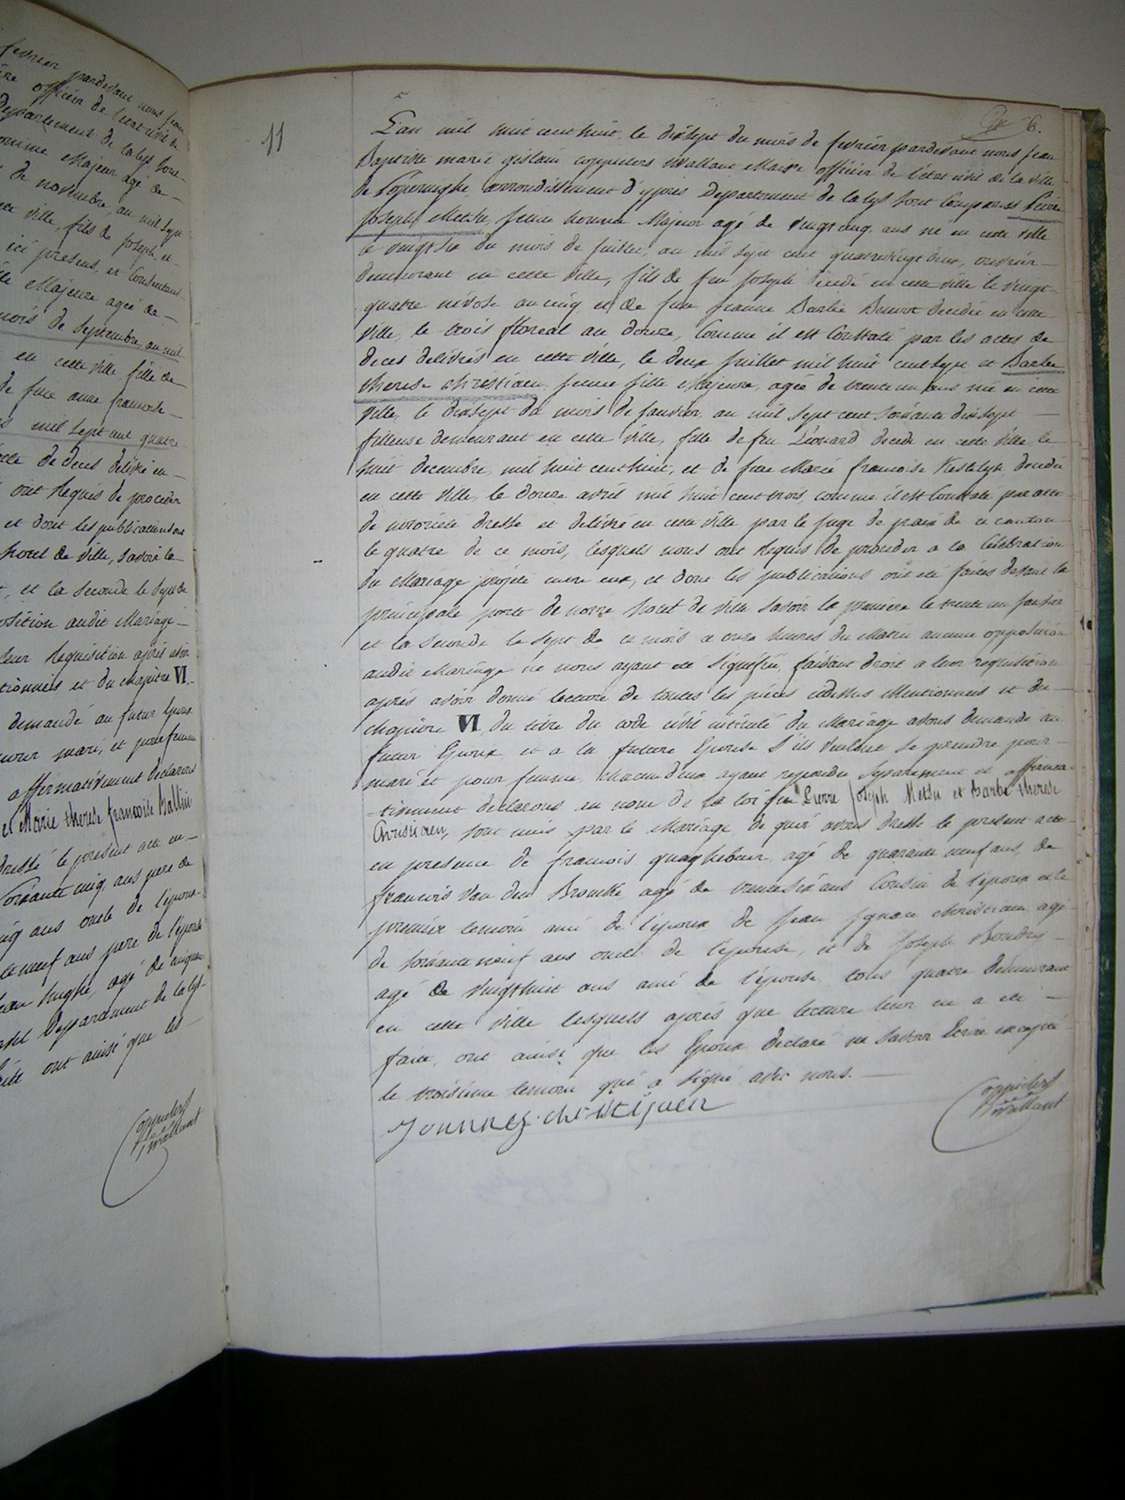 fevrier pardevant nous jean
officier de l'etat civil de
Departement de la lys sont
homme Majeur agé de
de novembre, an mil sept
ville, fils de Joseph, et
ici present, et Consentant
Majeure agée de
mois de septembre, an mil
en cette ville fille de
de feue anne francoise
mil sept cent quatre
de deces delivré en
ont Requis de proceder
et dont les publications ont
hotel de ville, savoir la
et la seconde le sept de
opposition audit Mariage
leur Requisition après avoir
tionnées et du chapitre VI
demandé au futur Epoux
pour mari, et pour femme
affirmativement declarons
et Marie therese francoise
dressé le present acte en
soixante cinq ans pere de
cinq ans oncle de l'epoux
neuf ans pere de l'epouse
agé de cinquante
Departement de la lys
ont ainsi que les
Coppieters
t'wallant
11
6.
L'an mil huit cent huit le dixsept du mois de fevrier pardevant nous jean
Baptiste marie gislain coppieters t'wallant Maire officier de l'etat civil de la ville
de Poperinghe arrondissement d'ypres Departement de la lys sont Comparus Pierre
Joseph Metsu, jeune homme Majeur agé de vingt cinq ans né en cette ville
le vingt six du mois de juillet, an mil sept cent quatrevingt deux, ouvrier
demeurant en cette ville, fils de feu Joseph decedé en cette ville le vingt
quatre nivose an cinq et de feue jeanne Barbe decedée en cette
ville, le trois floreal an douze, Comme il est Constaté par les actes de
deces delivrés en cette ville, le deux juillet mil huit cent sept et Barbe
therese christiaen, jeune fille Majeure, agée de trente un ans née en cette
ville, le dixsept du mois de janvier an mil sept cent soixante dixsept
fileuse demeurant en cette ville, fille de feu Léonard decedé en cette ville le
huit decembre, mil huit cent huit, et de feue Marie francoise decedée
en cette ville, le douze avril mil huit cent trois comme il est Constaté par acte
de notorieté dressé et delivré en cette ville par le juge de paix de ce canton
le quatre de ce mois, lesquels nous ont Requis de proceder a la Celebration
du Mariage projeté entre eux, et dont les publications ont été faites devant la
principale porte de notre hotel de ville savoir la premiere le trente un janvier
et la seconde le sept de ce mois a onze heures du Matin aucune opposition
audit Mariage ne nous ayant eté Signifiée, faisant droit a leur requisition
après avoir donné lecture de toutes les pièces cidessus Mentionnées et du
chapitre VI du titre du code civil intitulé du Mariage avons demandé au
futur Epoux et a la future Epouse s'ils veulent se prendre pour
mari et pour femme, chacun d'eux ayant repondu separement et affirma
tivement declarons au nom de la loi que Pierre Joseph Metsu et Barbe therese
Christiaen, sont unis par le Mariage, de quoi avons dressé le present acte
en presence de francois quaghebeur, agé de quarante neuf ans, de
francois Van den Broucke agé de ans Cousin de l'epoux et le
premier temoin ami de l'epoux de Jean Ignace christiaen agé
de soixante neuf ans oncle de l'epouse, et de Joseph Boudry
agé de vingt huit ans ami de l'épouse, tous quatre demeurant
en cette ville lesquels après que lecture leur en a eté
faite, ont ainsi que les Epoux declaré ne savoir Ecrire excepté
le troisieme temoin qui a signé avec nous.
Joannes christijaen
Coppieters
t'wallant